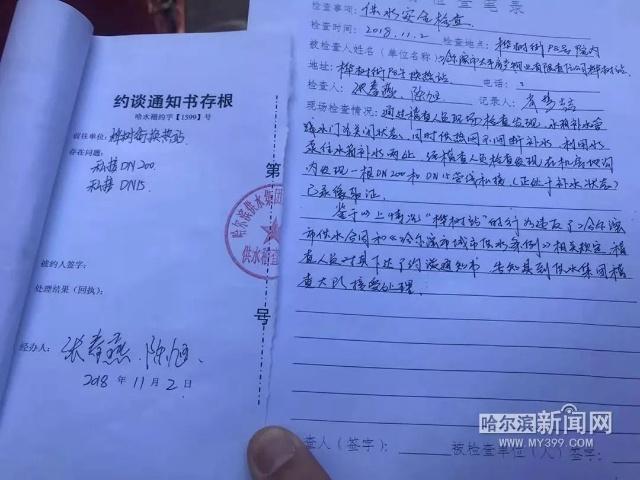 约谈通知书存根
哈水稽约字【1599】号
前往单位：桦树街换热站
存在问题：
私接DN200
私接DN15
被约人签字：
处理结果（回执）：
经办人：张春燕 陈旭
2018年11月2日
第
号
哈尔滨供水集团
供水稽查
检查笔录
检查事项：供水安全检查
检查时间：2018.11.2 检查地点：桦树街PE号院内
被检查人姓名（单位名称）
地址：桦树街 换热站 电话：
检查人：张春燕 陈旭 记录人：
现场检查情况：通过稽查人员现场检查发现，水箱补水管
线水门为关闭状态，同时供热间不间断补水，利用水
表往水箱补水 经稽查人员检查发现，在机房地沟
内发现一根DN200和DN15管线私接（正处于补水状态）
已录像取证。
鉴于以上情况“桦树站”的行为违反了《哈尔滨
市供水合同和《哈尔滨市城市供水条例》相关规定，稽
查人员对其下达了约谈通知书，告知其到供水集团稽
查大队接受处理。
查人（签字）： 被检查单位（人）签字：
哈尔滨新闻网
WWW.MY399.COM